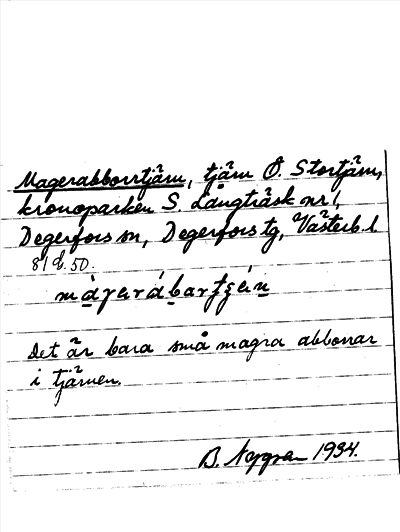 Magerabborrtjärn, tjärn Ö. Stortjärn,
kronoparken S. Långträsk nr 1,
Degerfors sn, Degerfors tg, Västerb. l
81 d. 50.
Det är bara små magra abborrar
i tjärnen.
B. 1934.